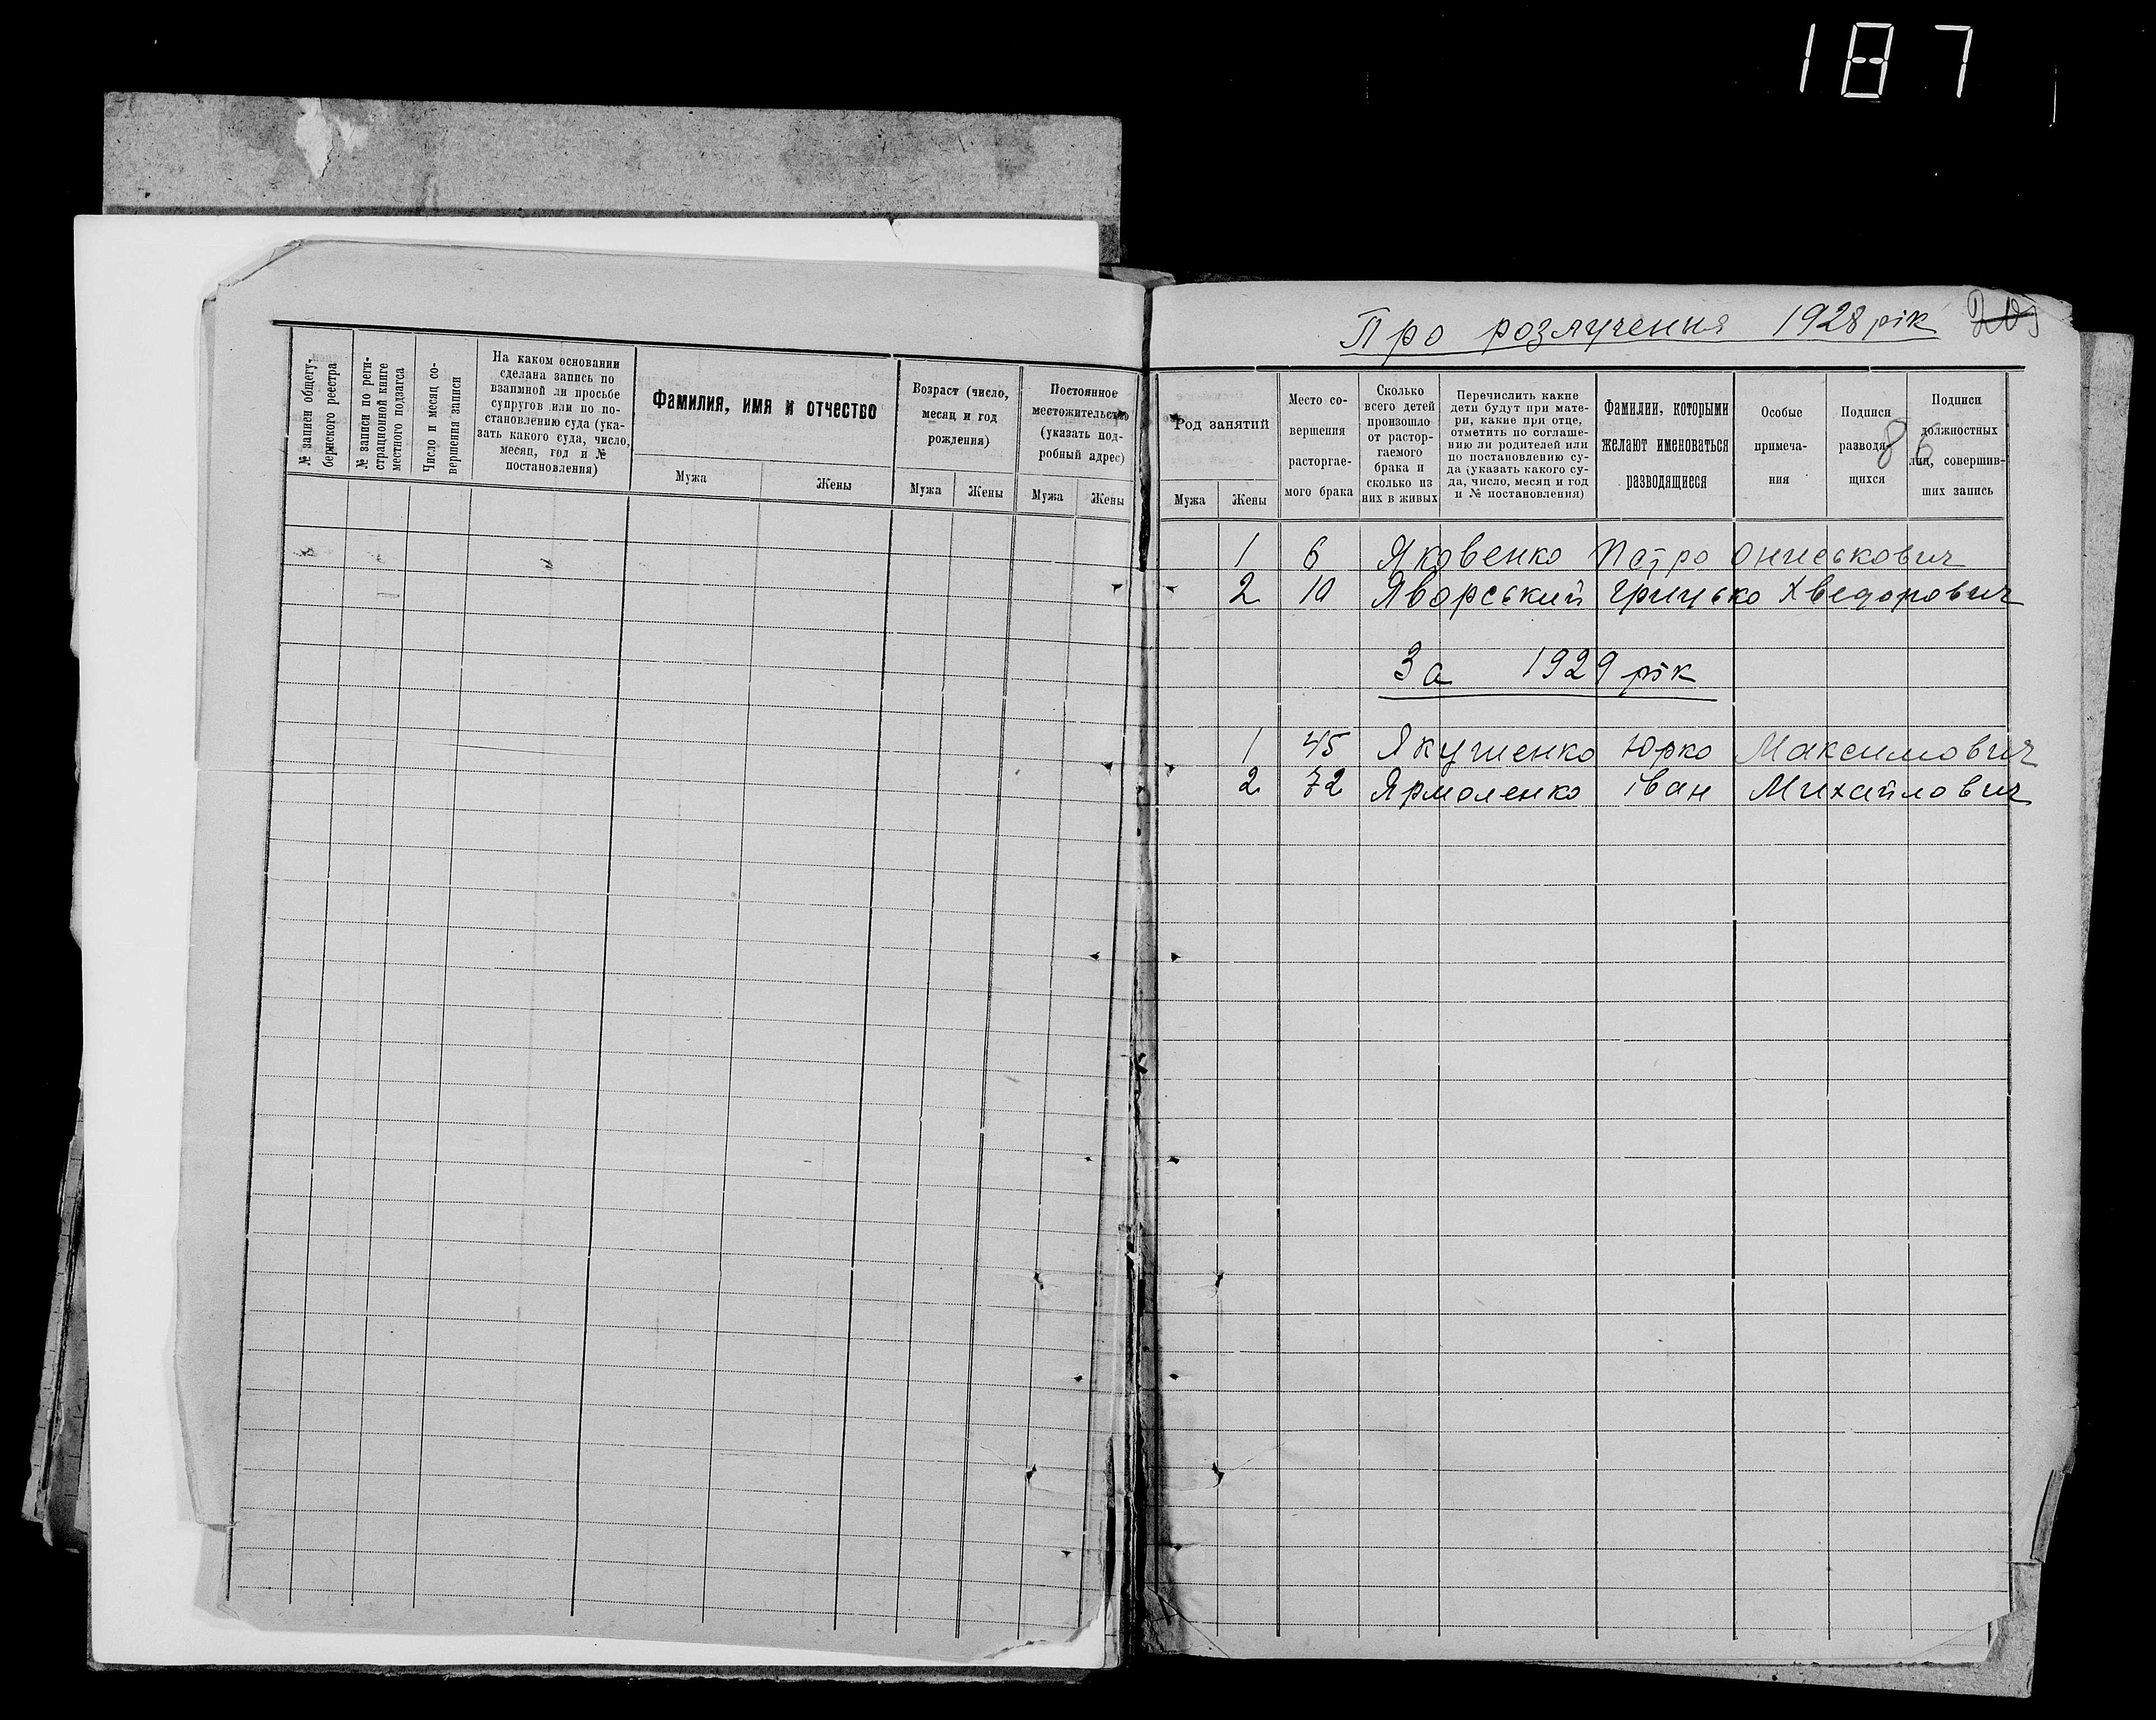 187
№ записи общегу-
бернского реестра
№ записи по реги-
страционной книге
местного подзагса
Число и месяц со-
вершения записи
На каком основании
сделана запись по
взаимной ли просьбе
супругов или по по-
становлению суда (ука-
зать какого суда, число,
месяц, год и №
постановления)
Фамилия, имя и отчество
Мужа
Жены
Возраст (число,
месяц и год
рождения)
Мужа
Жены
Постоянное
местожительство
(указать под-
робный адрес)
Мужа
Жены
Про розлучення 1928 рік
Род занятий
Мужа
Жены
Место со-
вершения
расторгае-
мого брака
Сколько
всего детей
произошло
от растор-
гаемого
брака и
сколько из
них в живых
Перечислить какие
дети будут при мате-
ри, какие при отце,
отметить по соглаше-
нию ли родителей или
по постановлению су-
да (указать какого су-
да, число, месяц и год
и № постановления)
Фамилии, которыми
желают именоваться
разводящиеся
Особые
примеча-
ния
Подписи
разводя-
щихся
Подписи
должностных
лиц, совершив-
ших запись
86
1 6 Яковенко Петро Ониськович
2 10 Яворський Грицько Хведорович
За 1929 рік
1 45 Якушенко Юрко Максимович
2 72 Ярмоленко Іван Михайлович